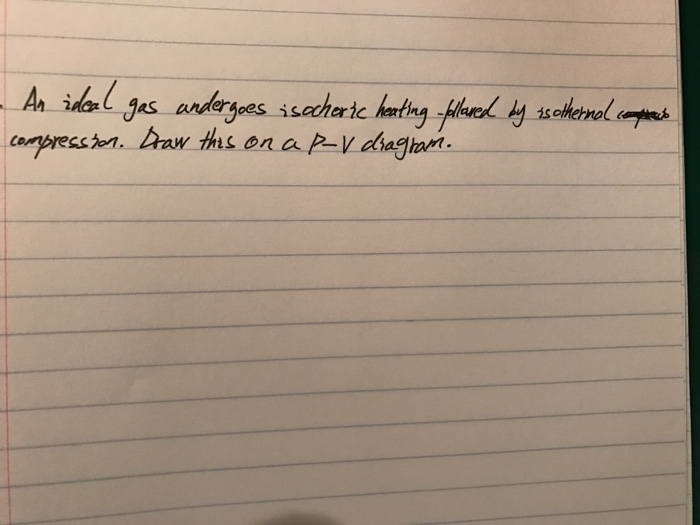 An ideal gas undergoes isochoric heating followed by isothermal
compression. Draw this on a P-V diagram.